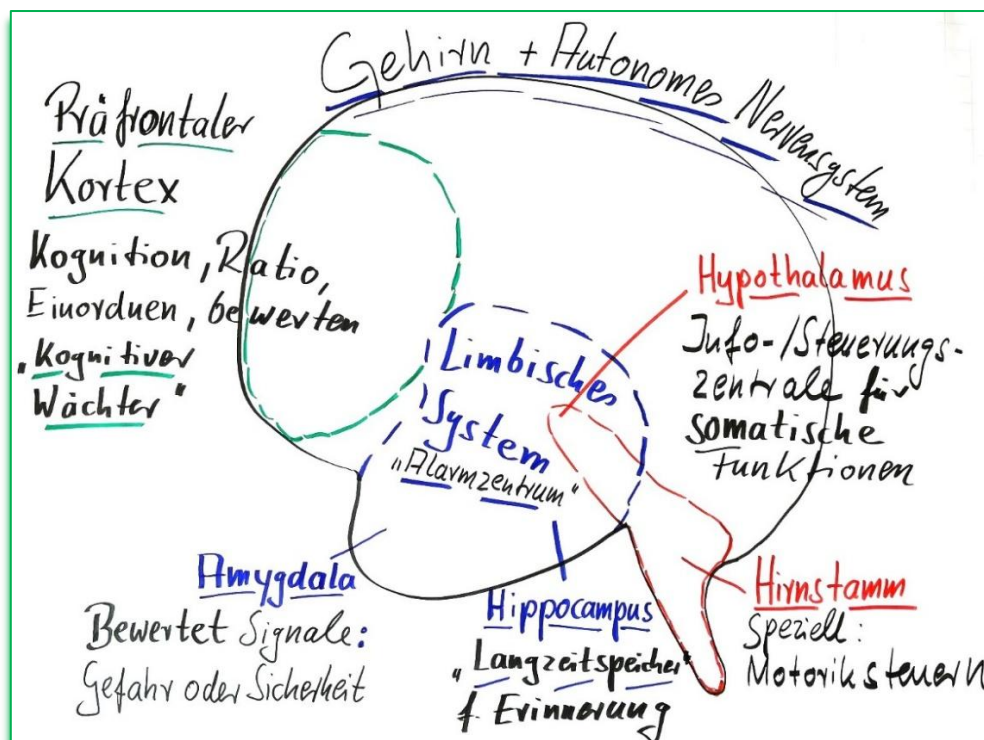 Gehirn + Autonomes Nervensystem
Präfrontaler
Kortex
Kognition, Ratio,
Einordnen, bewerten
"Kognitiver
Wächter"
Limbisches
System
"Alarmzentrum"
Hypothalamus
Info-/Steuerungs-
zentrale für
somatische
Funktionen
Amygdala
Bewertet Signale:
Gefahr oder Sicherheit
Hippocampus
"Langzeitspeicher"
f. Erinnerung
Hirnstamm
Speziell:
Motorik steuern